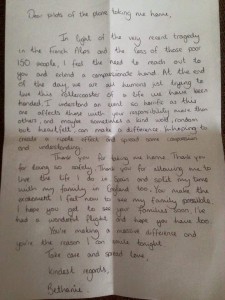 Dear pilots of the plane taking me home,
In light of the very recent tragedy
in the French Alps and the loss of those poor
150 people, I feel the need to reach out to
you and extend a compassionate hand. At the end
of the day, we are all humans just trying to
live this rollercoaster of a life we have been
handed. I understand an event so horrific as this
one affects those with your responsibility more than
others, and maybe sometimes a kind word, random
but heartfelt, can make a difference. I'm hoping to
create a ripple effect and spread some compassion
and understanding.
Thank you for taking me home. Thank you
for doing so safely. Thank you for allowing me to
live the life I do in Spain and solidify my time
with my family in England too. You make the
excitement I feel now to see my family possible.
I hope you get to see your families soon. I've
had a wonderful flight and hope you have too.
You're making a massive difference and
you're the reason I can smile tonight.
Take care and spread love,
kindest regards,
Bethanie